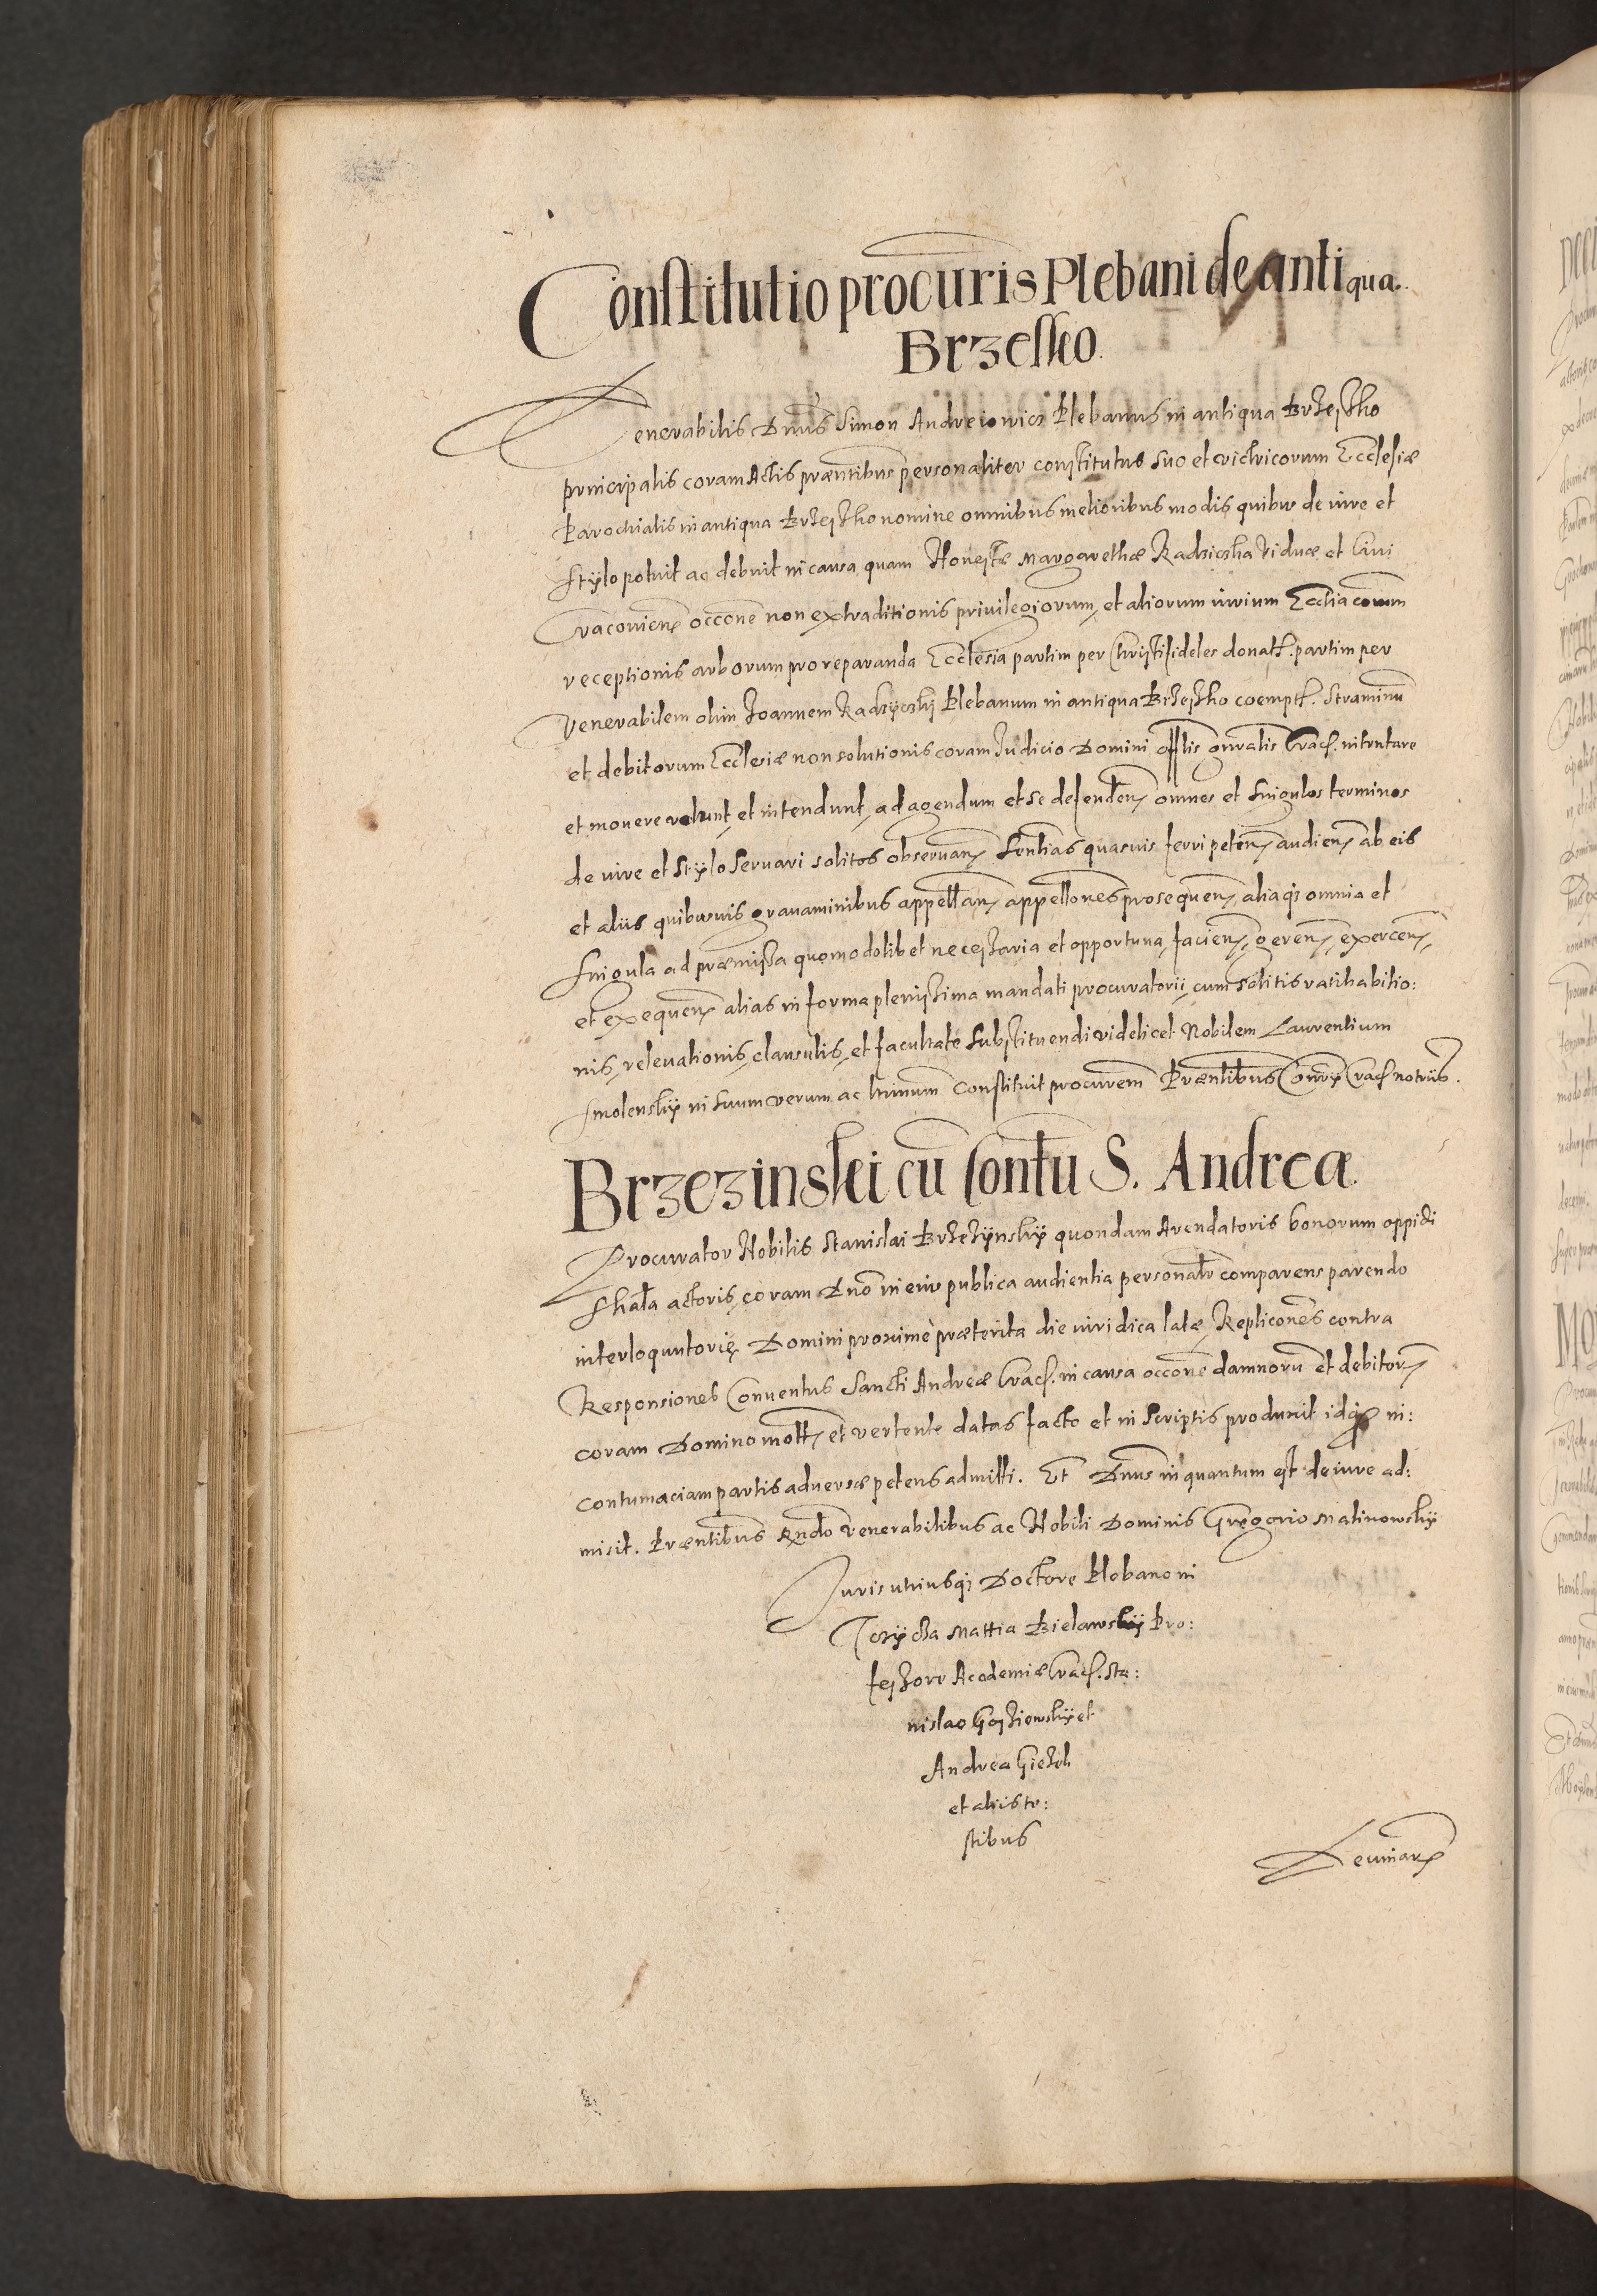 Constitutio procuris Plebani de antiqua.
Brzesko.
Venerabilis Dnus Simon Andreiowicz Plebanus in antiqua Brzesko
principalis coram Actis præntibus personaliter constitutus suo et victricorum Ecclesiæ
Parochialis in antiqua Brzesko nomine omnibus melioribus modis quibus de iure et
stylo potuit ac debuit in causa quam Honestæ Margarethæ Radzicska Viduæ et Civi
Cracovien occone non extraditionis privilegiorum, et aliorum iurium Ecclia corum
receptionis arborum pro reparanda Ecclesia partim per Christifideles donat. partim per
Venerabilem olim Joannem Radzycskij Plebanum in antiqua Brzesko coempt. straminu
et debitorum Ecclesiæ non solutionis coram Judicio Domini offlis gnralis Crac. intentare
et movere volunt, et intendunt, ad agendum et se defenden omnes et singulos terminos
de iure et stylo servari solitos observan sentias quasvis ferri peten audien ab eis
et aliis quibusvis gravaminibus appellan appellones prosequen aliaq; omnia et
singula ad præmissa quomodolibet necessaria et opportuna facien, geren, exercen,
et exequen alias in forma plenissima mandati procuratorii, cum solitis ratihabitio:
nis, relevationis, clausulis, et facultate substituendi videlicet Nobilem Laurentium
Smolensky in suum verum ac ltimum constituit procurem Præntibus Consry Crac notriis.
Brzezinski cu Contu S. Andrea.
Procurator Nobilis Stanislai Brzezynsky quondam Arendatoris bonorum oppidi
Skala actoris, coram Dno in eius publica audientia personalr comparens parendo
interloquutorię Domini proxime præterita die iuridica latæ Replicones contra
Responsiones Conventus Sancti Andreæ Crac. in causa occone damnoru et debitor
coram Domino mott, et vertente datas facto et in scriptis produxit idq; in:
contumaciam partis adversæ petens admitti. Et Dnus in quantum est de iure ad:
misit. Præntibus Rndo Venerabilibus ac Nobili Dominis Gregorio Malinowsky
Juris utriusq; Doctore Plebano in
Tczycza Mattia Bielawsky Pro:
fessore Academiæ Crac. Sta:
nislao Gosziewsky et
Andrea Gieszek
et aliis te:
stibus